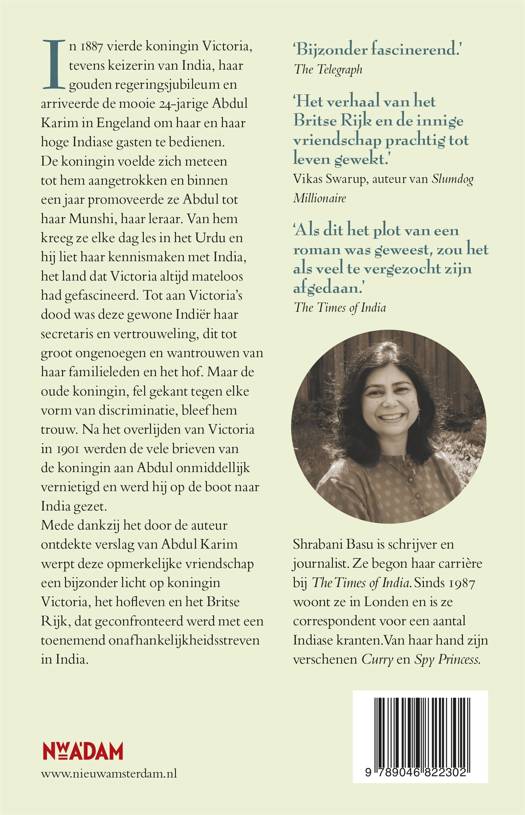 In 1887 vierde koningin Victoria,
tevens keizerin van India, haar
gouden regeringsjubileum en
arriveerde de mooie 24-jarige Abdul
Karim in Engeland om haar en haar
hoge Indiase gasten te bedienen.
De koningin voelde zich meteen
tot hem aangetrokken en binnen
een jaar promoveerde ze Abdul tot
haar Munshi, haar leraar. Van hem
kreeg ze elke dag les in het Urdu en
hij liet haar kennismaken met India,
het land dat Victoria altijd mateloos
had gefascineerd. Tot aan Victoria's
dood was deze gewone Indiër haar
secretaris en vertrouweling, dit tot
groot ongenoegen en wantrouwen van
haar familieleden en het hof. Maar de
oude koningin, fel gekant tegen elke
vorm van discriminatie, bleef hem
trouw. Na het overlijden van Victoria
in 1901 werden de vele brieven van
de koningin aan Abdul onmiddellijk
vernietigd en werd hij op de boot naar
India gezet.
Mede dankzij het door de auteur
ontdekte verslag van Abdul Karim
werpt deze opmerkelijke vriendschap
een bijzonder licht op koningin
Victoria, het hofleven en het Britse
Rijk, dat geconfronteerd werd met een
toenemend onafhankelijkheidsstreven
in India.
NWADAM
www.nieuwamsterdam.nl
'Bijzonder fascinerend.'
The Telegraph
'Het verhaal van het
Britse Rijk en de innige
vriendschap prachtig tot
leven gewekt.'
Vikas Swarup, auteur van Slumdog
Millionaire
'Als dit het plot van een
roman was geweest, zou het
als veel te vergezocht zijn
afgedaan.'
The Times of India
Shrabani Basu is schrijver en
journalist. Ze begon haar carrière
bij The Times of India. Sinds 1987
woont ze in Londen en is ze
correspondent voor een aantal
Indiase kranten. Van haar hand zijn
verschenen Curry en Spy Princess.
9 789046 822302